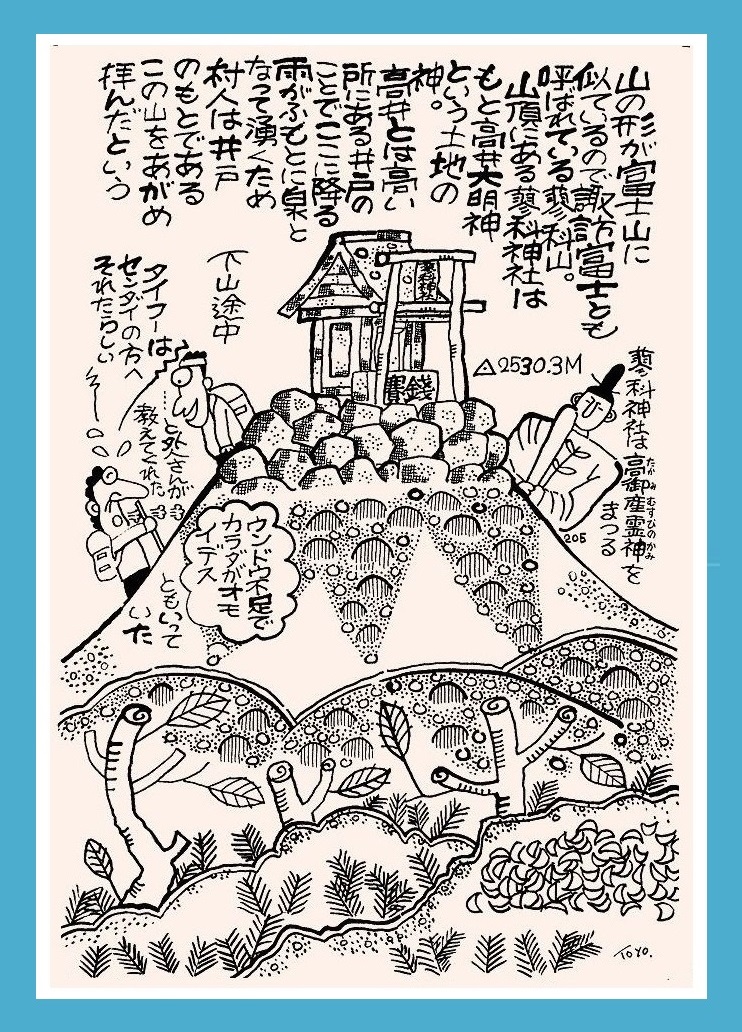 山の形が富士山に
似ているので諏訪富士とも
呼ばれている蓼科山。
山頂にある蓼科神社は
もと高井大明神
という土地の
神。
高井とは高い
所にある井戸の
ことでここに降る
雨がふもとに泉と
なって湧くため
村人は井戸
のもとである
この山をあがめ
拝んだという
蓼科神社
賽銭
△2530.3M
蓼科神社は
高御産霊神を
たかみむすびのかみ
まつる
205
下山途中
タイフーは
センダイの方へ
それたらしい
と外人さんが
教えてくれた
ウンドウ不足で
カラダがオモ
イデス
ともいって
いた
TOYO.